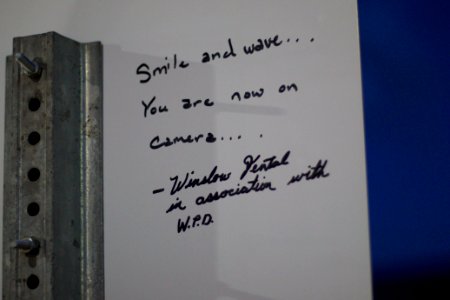 Smile and wave...
You are now on
camera....
- Winslow Dental
in association with
W.P.D.